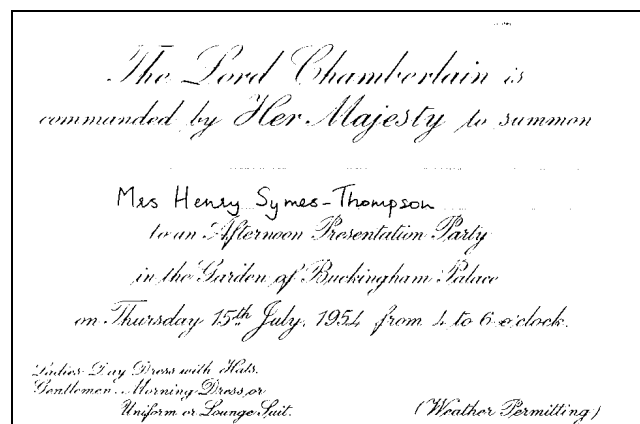 The Lord Chamberlain is
commanded by Her Majesty to summon
Mrs Henry Symes-Thompson
to an Afternoon Presentation Party
in the Garden of Buckingham Palace
on Thursday 15th July, 1954 from 4 to 6 o'clock.
Ladies Day Dress with Hats.
Gentlemen Morning Dress, or
Uniform or Lounge Suit.
(Weather Permitting)